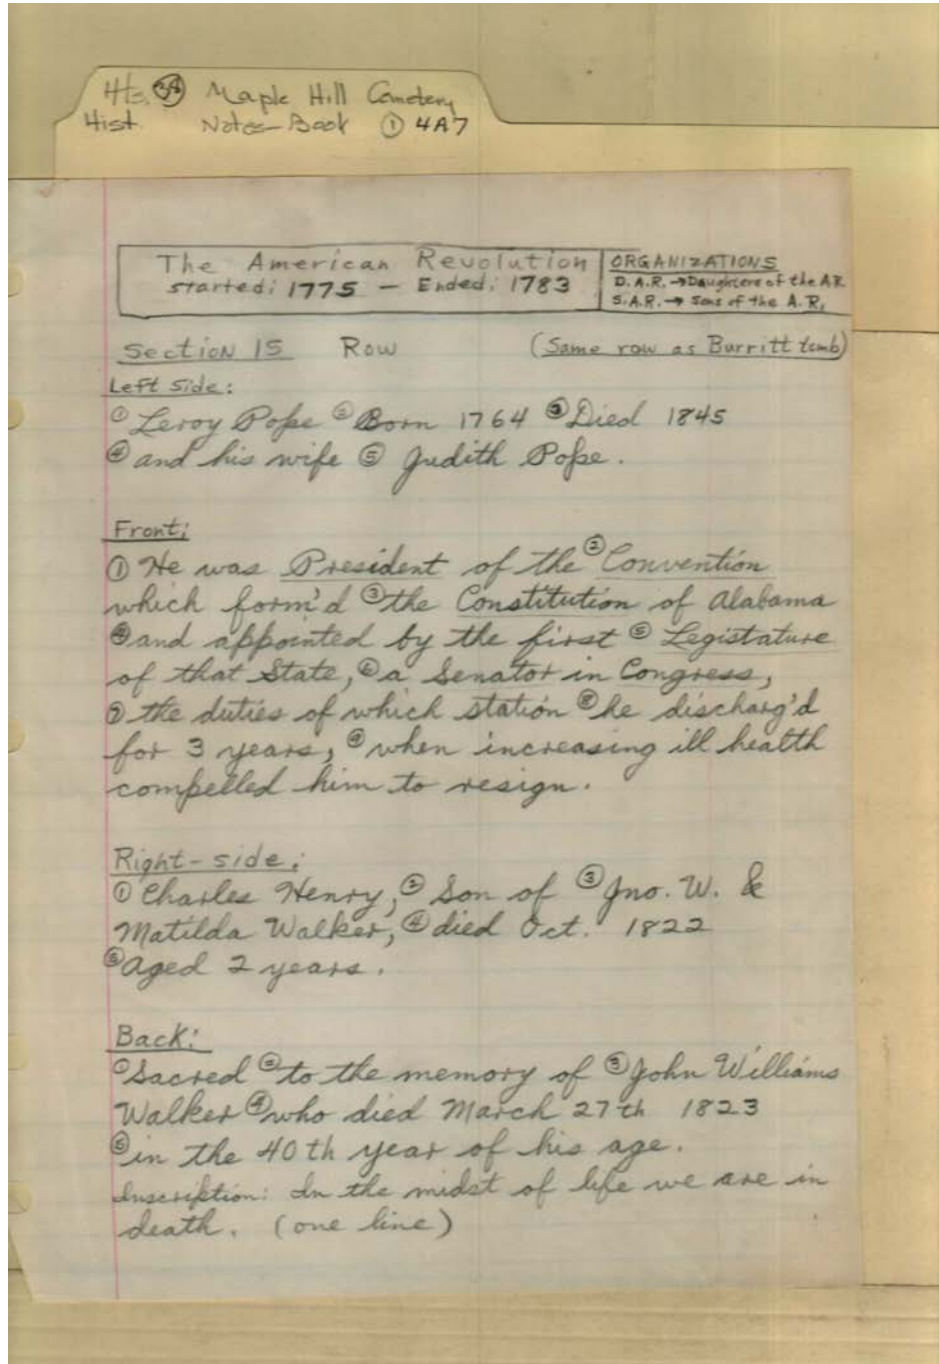 Hts. 38 Maple Hill Cemetery
Hist. Notes-Book ① 4A7
The American Revolution
started: 1775 — Ended: 1783
ORGANIZATIONS
D.A.R. → Daughters of the A.R.
S.A.R. → Sons of the A.R.
Section 15 Row (Same row as Burritt tomb)
Left side:
① Leroy Pope ② Born 1764 ③ Died 1845
④ and his wife ⑤ Judith Pope.
Front:
① He was President of the ② Convention
which form'd ③ the Constitution of Alabama
④ and appointed by the first ⑤ Legistature
of that State, ⑥ a Senator in Congress,
⑦ the duties of which station ⑧ he discharg'd
for 3 years, ⑨ when increasing ill health
compelled him to resign.
Right-side:
① Charles Henry, ② Son of ③ Jno. W. &
Matilda Walker, ④ died Oct. 1822
⑤ aged 2 years.
Back:
① Sacred ② to the memory of ③ John Williams
Walker ④ who died March 27th 1823
⑤ in the 40th year of his age.
Inscription: In the midst of life we are in
death. (one line)